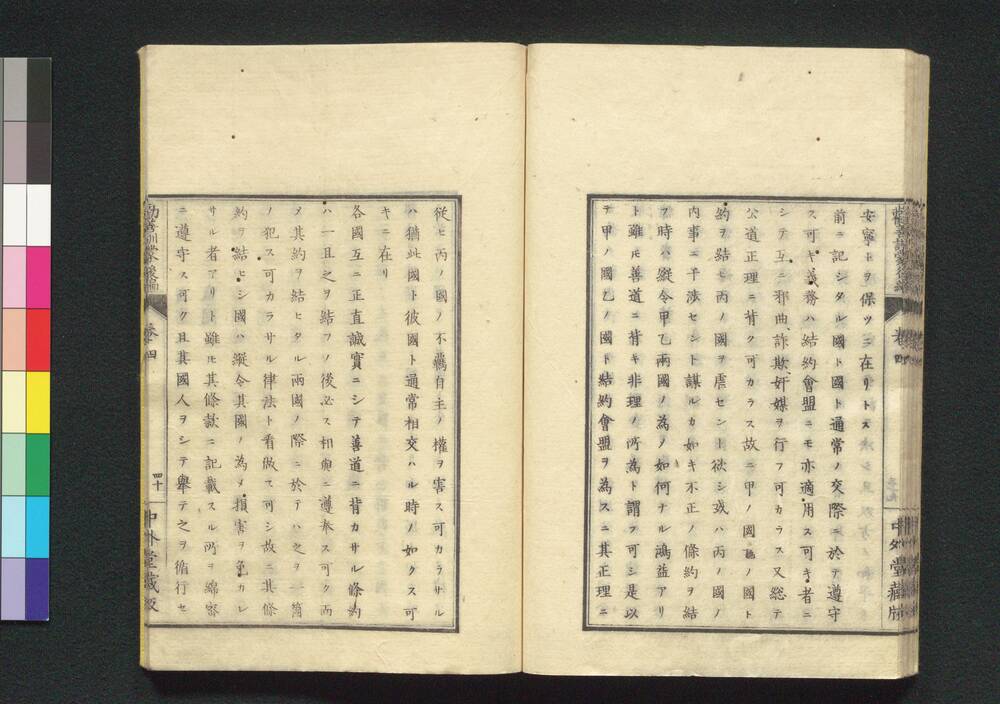 安寧トヲ保ツニ在リトス
前ニ記シタル國ト國ト通常ノ交際ニ於テ遵守
ス可キ義務ハ結約會盟ニモ亦適用ス可キ者ニ
シテ互ニ邪曲、詐欺、奸媒ヲ行フ可カラス又総テ
公道正理ニ背ク可カラス故ニ甲ノ國乙ノ國ト
約ヲ結ヒ丙ノ國ヲ虐セント欲シ或ハ丙ノ國ノ
内事ニ干渉セント謀ルカ如キ不正ノ條約ヲ結
フ時ハ縱令甲乙兩國ノ為ノ如何ナル鴻益アリ
ト雖モ善道ニ背キ非理ノ所為ト謂フ可シ是以
テ甲ノ國乙ノ國ト結約會盟ヲ為スニ其正理ニ
巻四
中外堂藏版
從ヒ丙ノ國ノ不羈自主ノ權ヲ害ス可カラサル
ハ猶此國ト彼國ト通常相交ハル時ノ如クス可
キニ在リ
各國互ニ正直誠實ニシテ善道ニ背カサル條約
ハ一旦之ヲ結フノ後必ス相與ニ遵奉ス可ク而
メ其約ヲ結ヒタル兩國ノ際ニ於テハ之ヲ一箇
ノ犯ス可カラサル律法ト看做ス可シ故ニ其條
約ヲ結ヒシ國ハ縱令其國ノ為メ損害ヲ免カレ
サル者アリト雖モ其條款ニ記載スル所ヲ綿密
ニ遵守ス可ク且其國人ヲシテ擧テ之ヲ循行セ
勸善訓蒙後編
巻四
四十
中外堂藏版